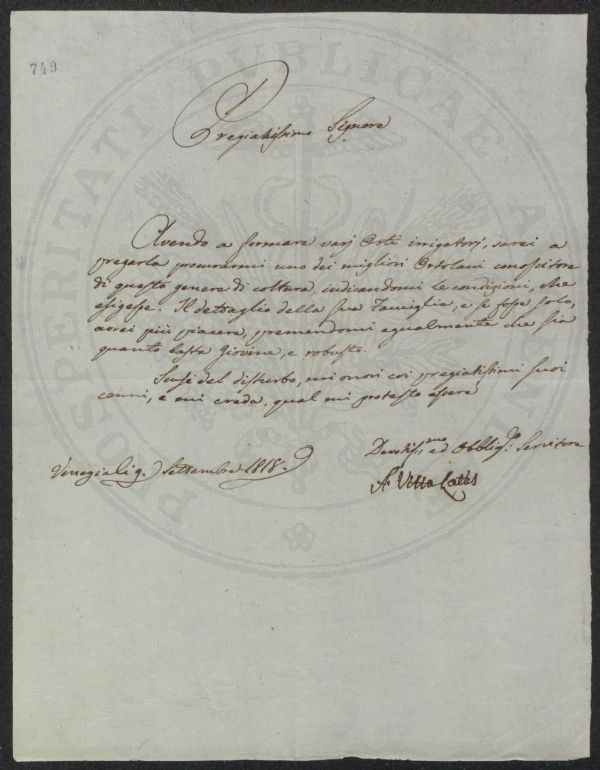 749
PROSPERITATI PUBLICAE
Pregiatissimo Signore
Avendo a formare varj Orti irrigatorj, sarei a
pregarla procurarmi uno dei migliori Ortolani conoscitore
di questo genere di coltura, indicandomi le condizioni, che
esigesse. Il dettaglio della sua Famiglia, e se fosse solo,
avrei più piacere, premendomi egualmente che sia
quanto basta Giovine, e robusto.
Scusi del disturbo, mi onori coi pregiatissimi suoi
cenni, e mi creda, qual mi protesto essere
Venezia li 9. Settembre 1818.
Devotiss.mo ed Obblig.mo Servitore
A. Vitta Cattis